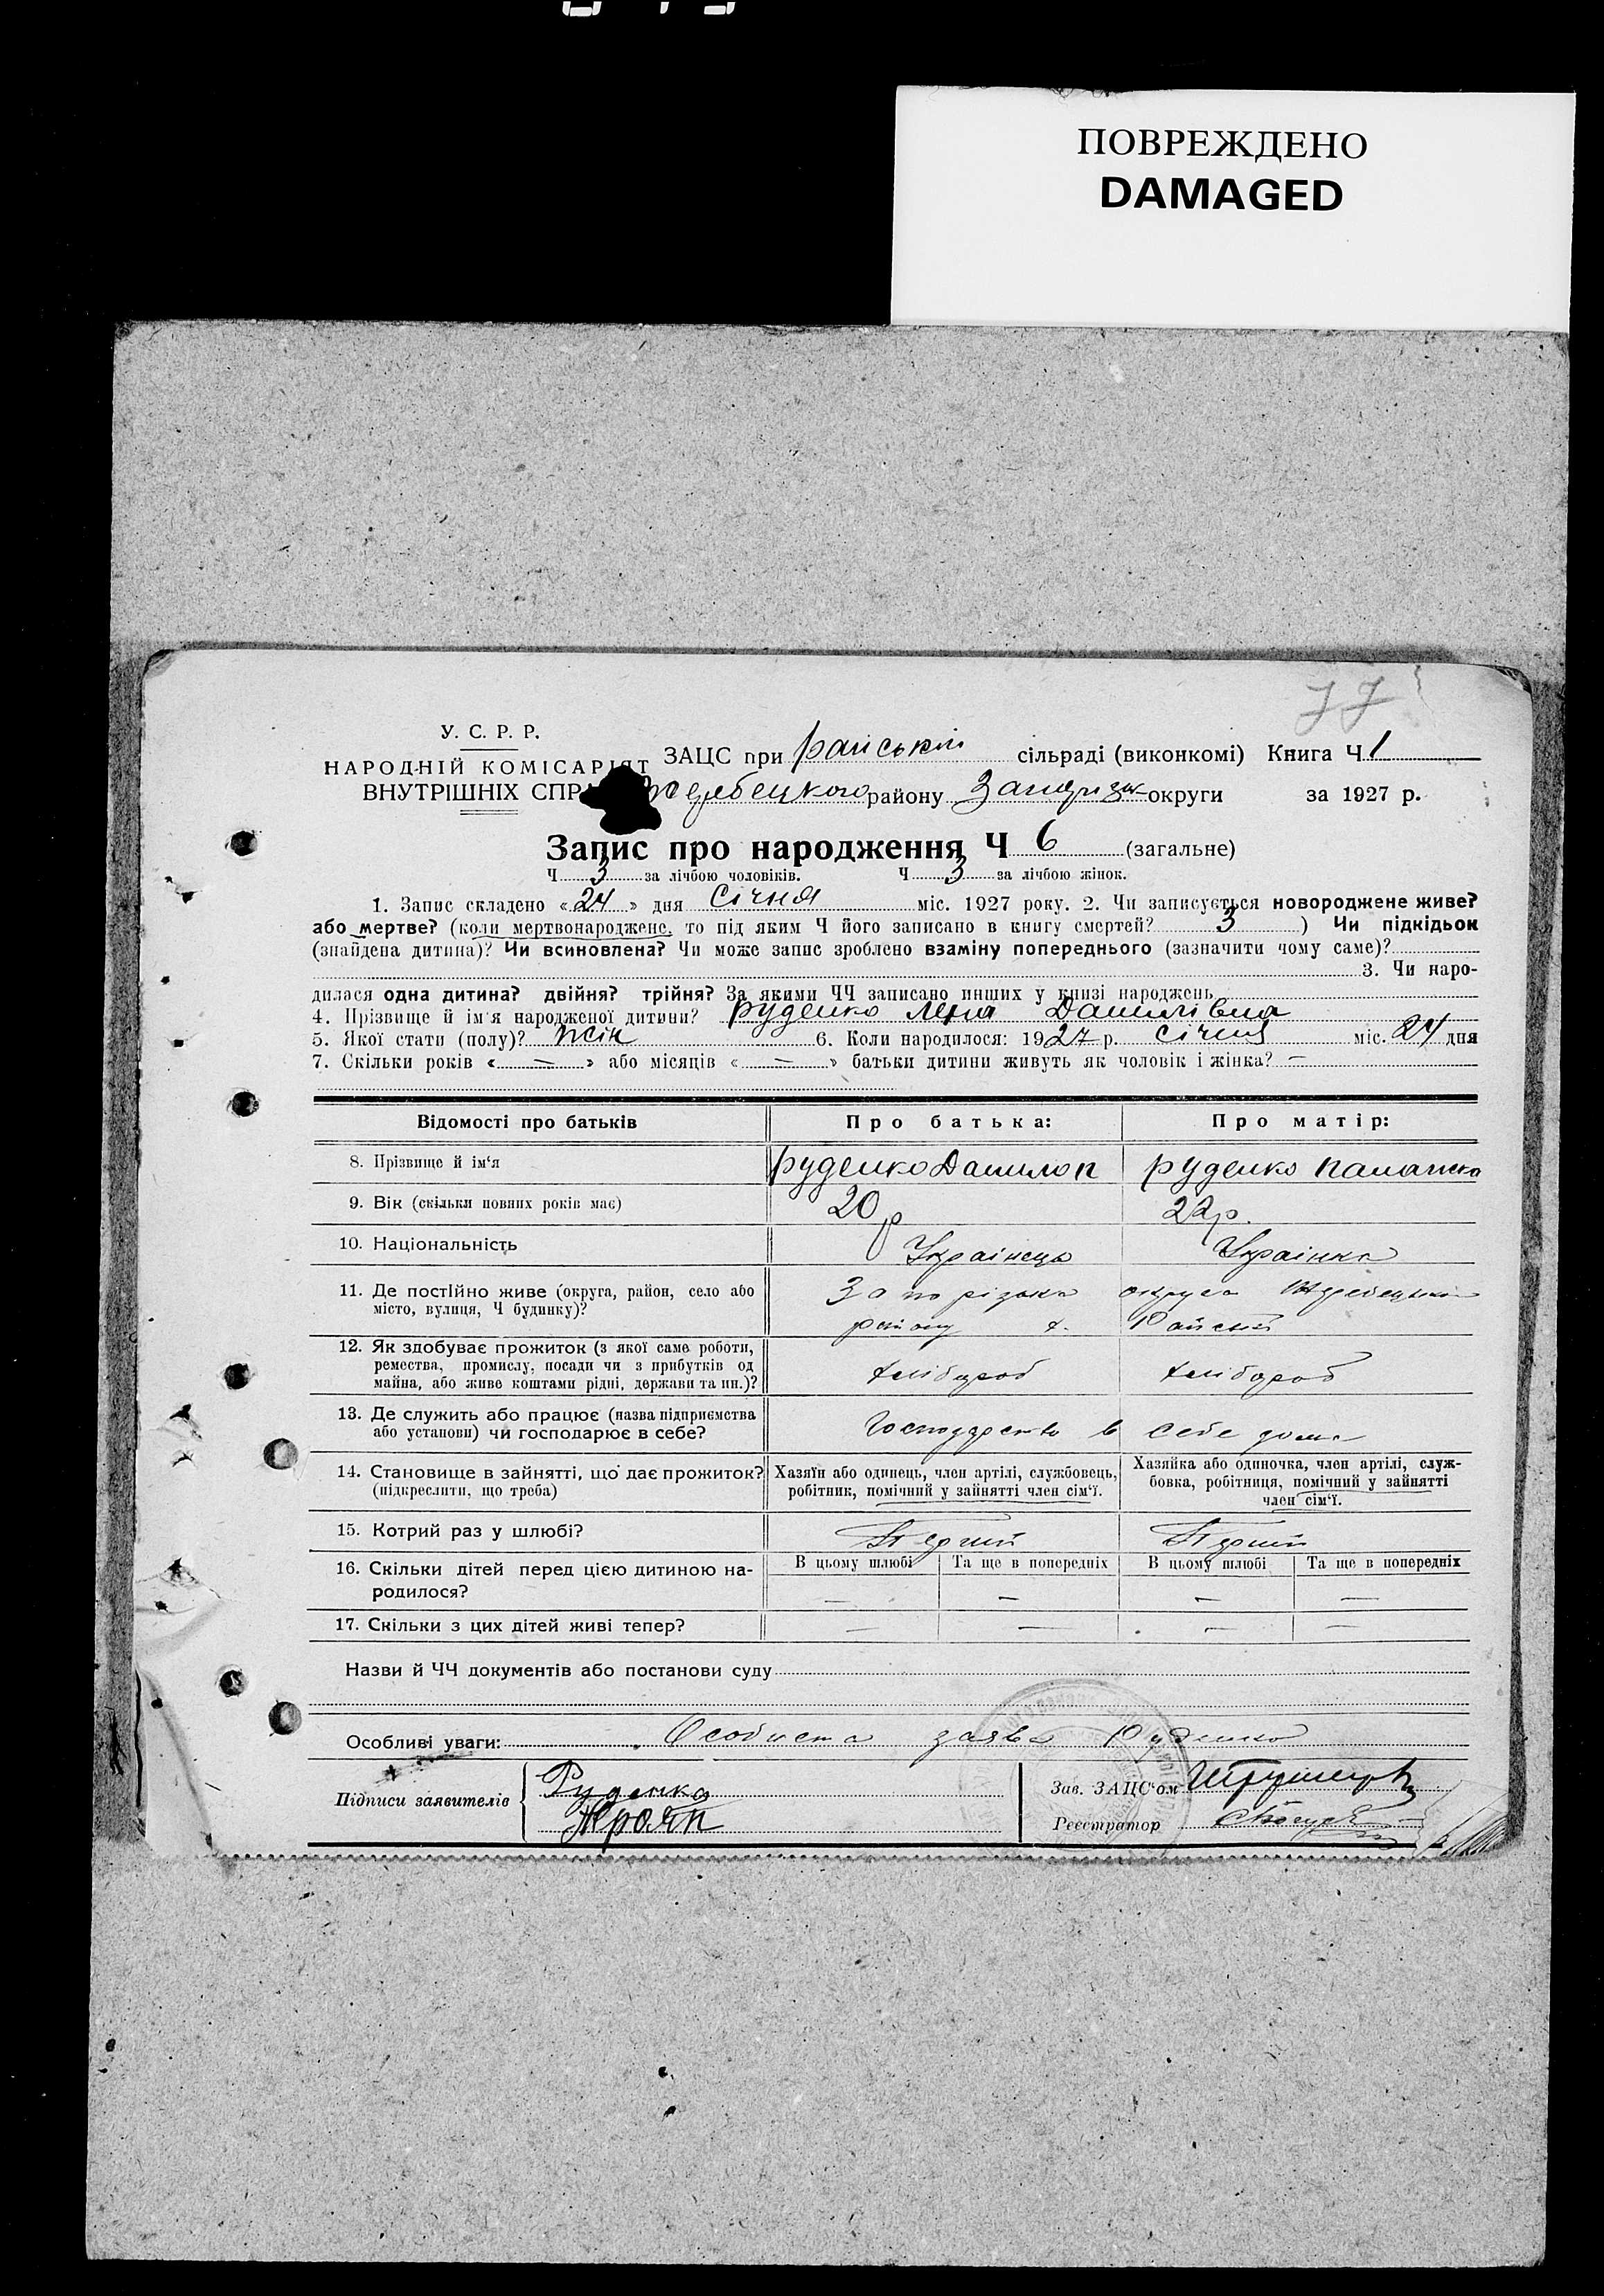 ПОВРЕЖДЕНО
DAMAGED
У. С. Р. Р.
НАРОДНІЙ КОМІСАРІЯТ
ВНУТРІШНІХ СПР
ЗАЦС при Райській сільраді (виконкомі) Книга Ч 1
району Запоріз округи за 1927 р.
Запис про народження Ч 6 (загальне)
Ч 3 за лічбою чоловіків. Ч 3 за лічбою жінок.
1. Запис складено « 24 » дня Січня міс. 1927 року. 2. Чи записується новороджене живе?
або мертве? (коли мертвонароджене, то під яким Ч його записано в книгу смертей? 3 ) Чи підкідьок
(знайдена дитина)? Чи всиновлена? Чи може запис зроблено взаміну попереднього (зазначити чому саме)?
3. Чи наро-
дилася одна дитина? двійня? трійня? За якими ЧЧ записано инших у книзі народжень
4. Прізвище й ім'я народженої дитини? Руденко Лена Данилівна
5. Якої стати (полу)? жін 6. Коли народилося: 1927 р. січня міс. 24 дня
7. Скільки років « — » або місяців « — » батьки дитини живуть як чоловік і жінка? —
Відомості про батьків Про батька: Про матір:
8. Прізвище й ім'я Руденко Данило П Руденко
9. Вік (скільки повних років має) 20 р 22 р.
10. Національність Українець Українка
11. Де постійно живе (округа, район, село або
місто, вулиця, Ч будинку)? Запорізька округа
району х. Райський
12. Як здобуває прожиток (з якої саме роботи,
ремества, промислу, посади чи з прибутків од
майна, або живе коштами рідні, держави та ин.)? хлібороб хлібороб
13. Де служить або працює (назва підприємства
або установи) чи господарює в себе? Господарство в себе дома
14. Становище в зайнятті, що дає прожиток?
(підкреслити, що треба)
Хазяїн або одинець, член артілі, службовець,
робітник, помічний у зайнятті член сім'ї.
Хазяйка або одиночка, член артілі, служ-
бовка, робітниця, помічний у зайнятті
член сім'ї.
15. Котрий раз у шлюбі? Перший Перший
16. Скільки дітей перед цією дитиною на-
родилося?
В цьому шлюбі Та ще в попередніх В цьому шлюбі Та ще в попередніх
— — — —
17. Скільки з цих дітей живі тепер? — — — —
Назви й ЧЧ документів або постанови суду
Особливі уваги: Особиста заява Руденко
Підписи заявителів Руденко
Зав. ЗАЦС'ом
Реєстратор